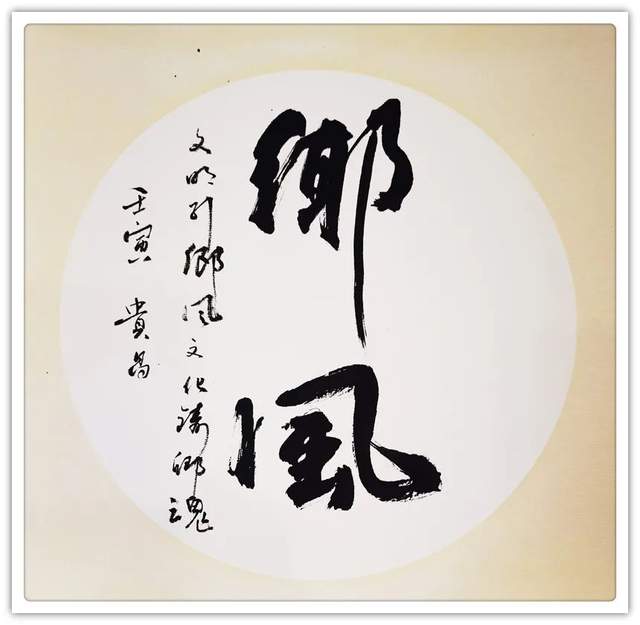 鄉風
文明引鄉風文化鑄鄉魂
壬寅 貴昌